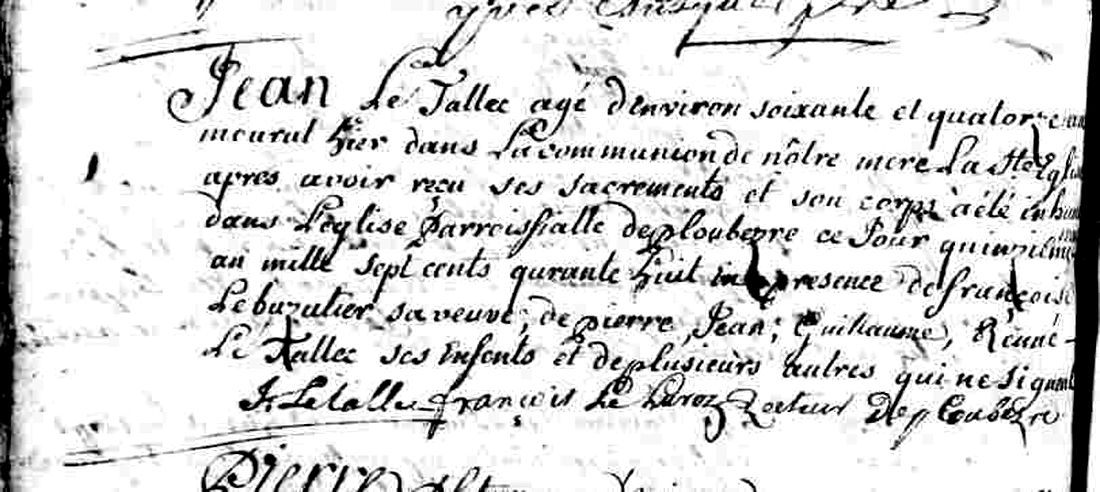 yves
Jean Le Tallec agé denviron soixante et quatorze an
mourut hier dans La communion de nôtre mere La Ste Egli
apres avoir reçu ses sacrements et son corps à été inhum
dans L'eglise Parroissialle de ploubezre ce Jour quinzième
an mille sept cents qurante huit en presence de françoise
Le buzulier sa veuve, de pierre, Jean, Guillaume, Renné
Le Tallec ses Enfents et de plusieurs autres qui ne signent
Le tallec françois Le Recteur De ploubezre
Pierre